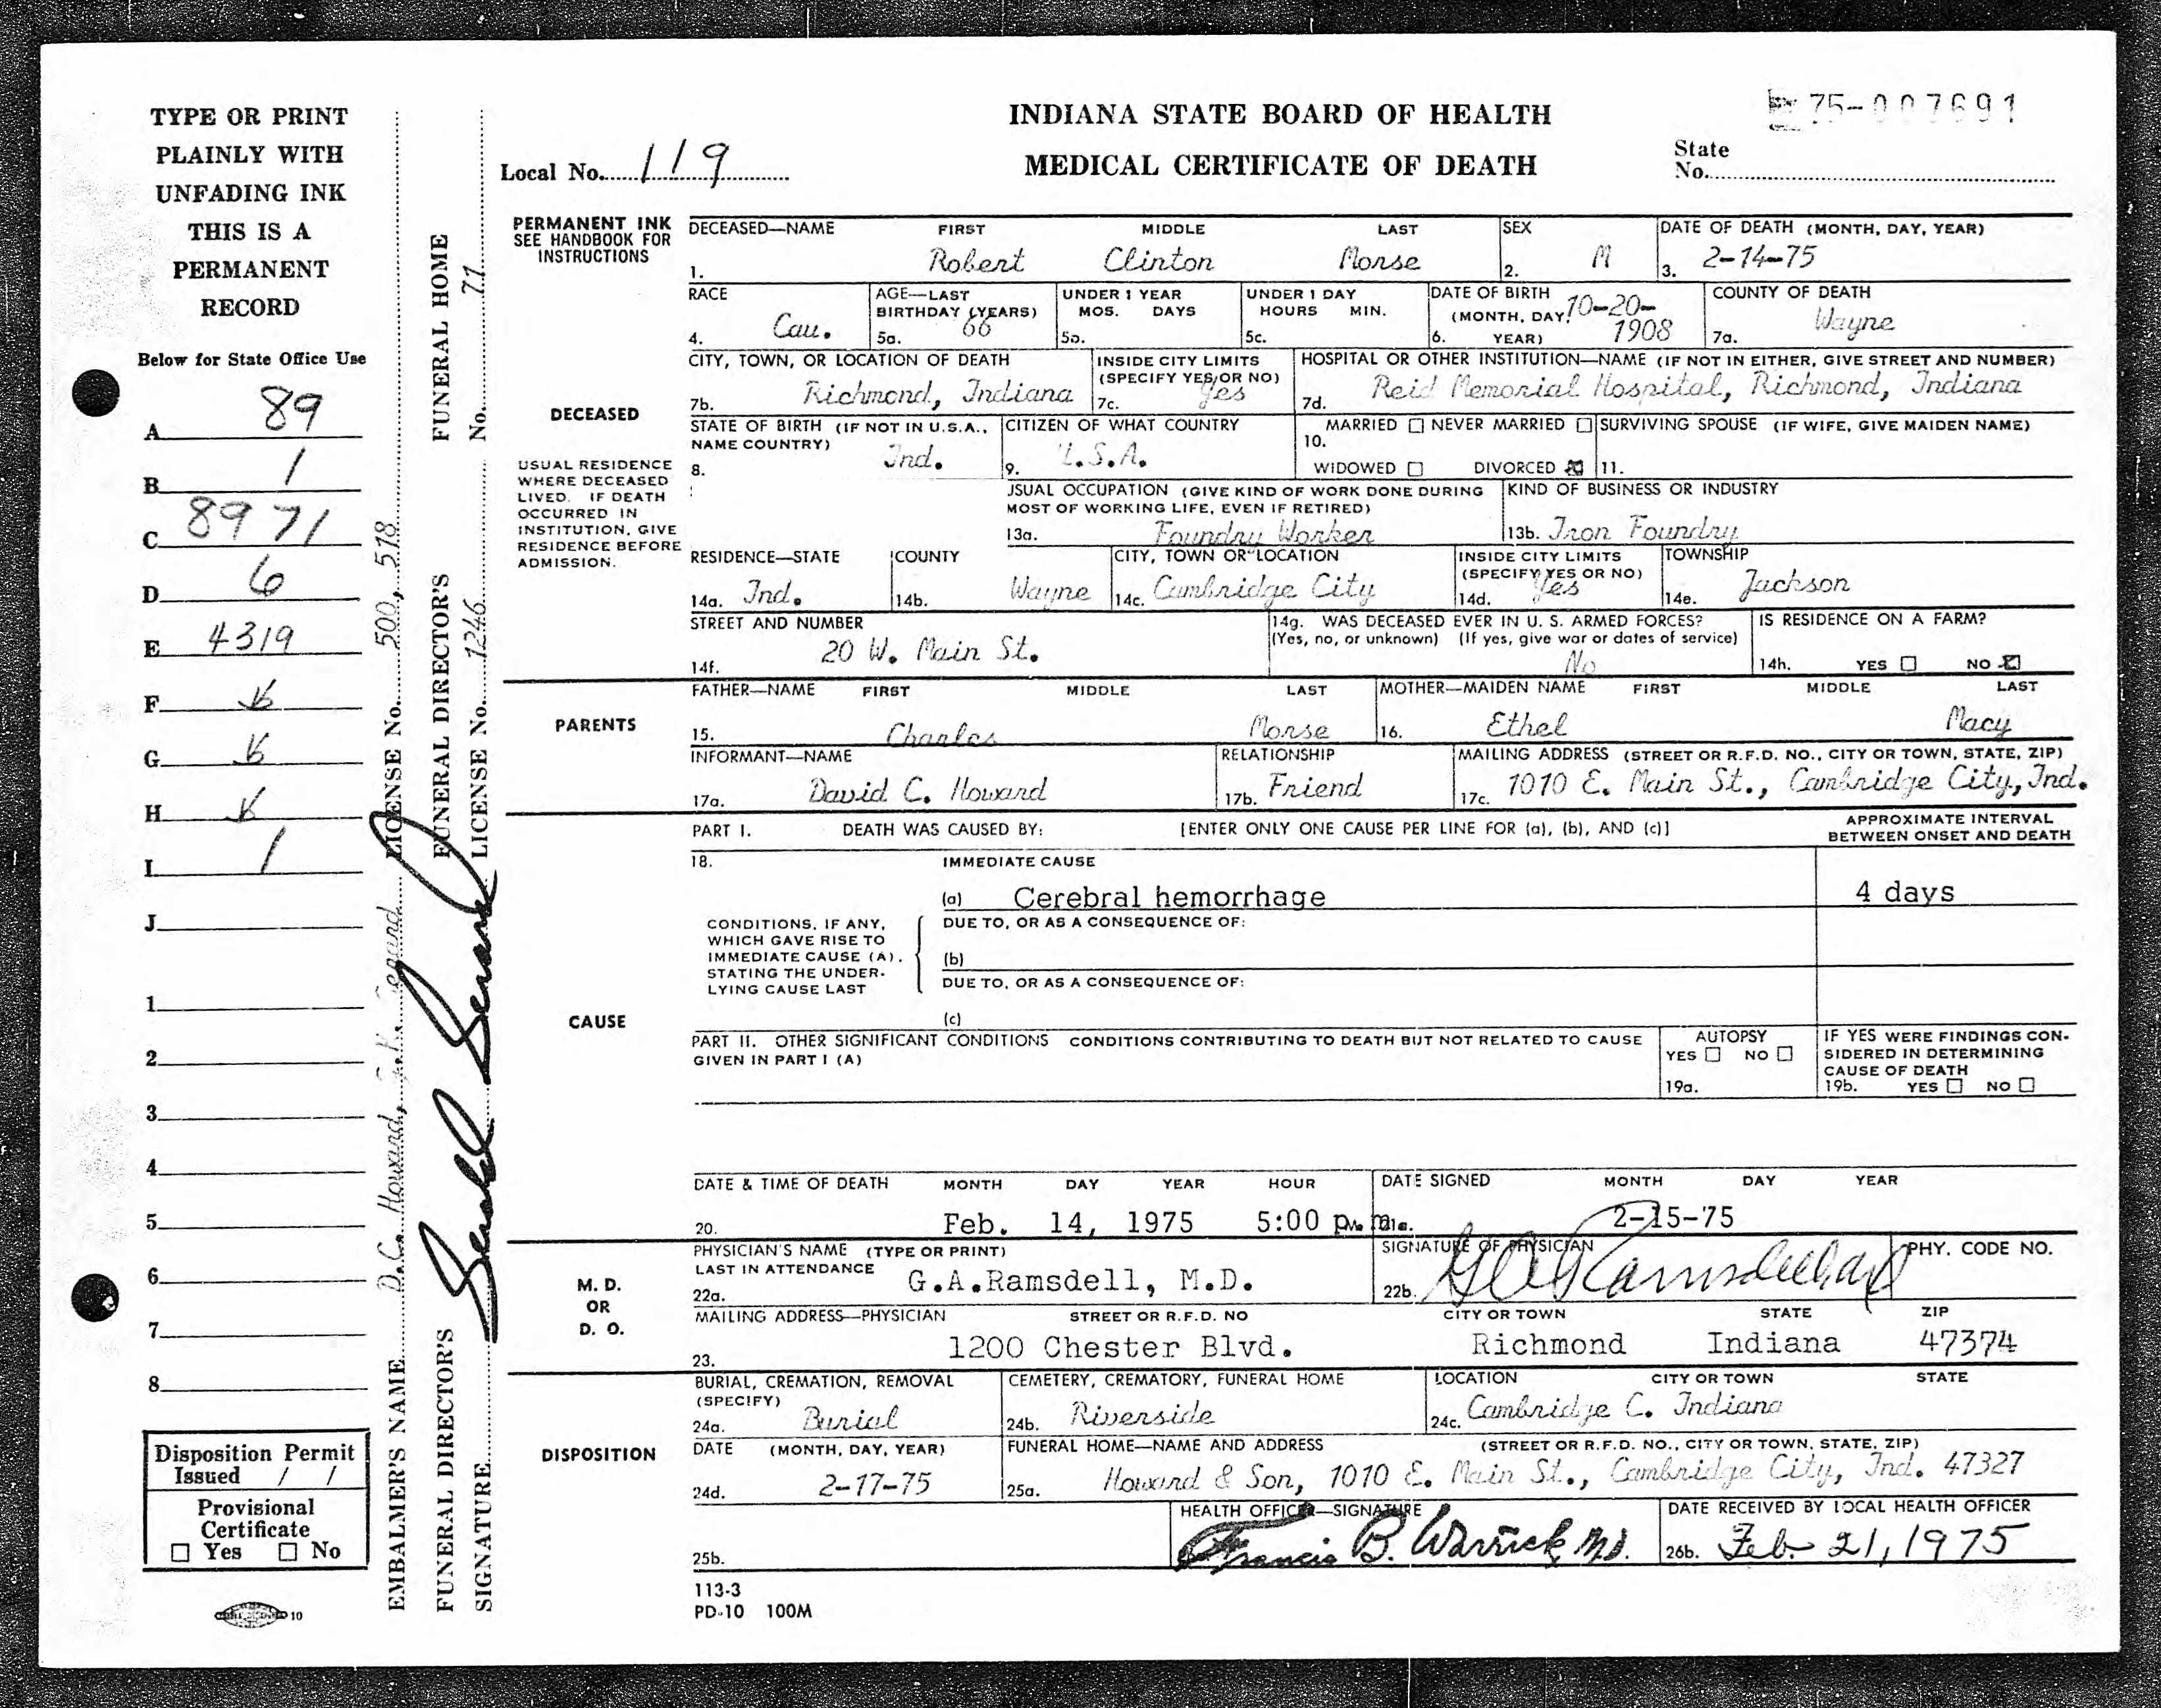 TYPE OR PRINT
PLAINLY WITH
UNFADING INK
THIS IS A
PERMANENT
RECORD
Below for State Office Use
A 89
B 1
C 89 71
D 6
E 4319
F
G
H
I 1
J
1
2
3
4
5
6
7
8
Disposition Permit
Issued / /
Provisional
Certificate
☐ Yes ☐ No
10
EMBALMER'S NAME D.C. Howard, LICENSE No. 500, 518
FUNERAL DIRECTOR'S FUNERAL DIRECTOR'S FUNERAL HOME
SIGNATURE LICENSE No. 1246 No. 71
INDIANA STATE BOARD OF HEALTH
MEDICAL CERTIFICATE OF DEATH
75-007691
State
No.
Local No. 119
PERMANENT INK
SEE HANDBOOK FOR
INSTRUCTIONS
DECEASED—NAME FIRST MIDDLE LAST SEX DATE OF DEATH (MONTH, DAY, YEAR)
1. Robert Clinton Morse 2. M 3. 2-14-75
RACE AGE—LAST BIRTHDAY (YEARS) UNDER 1 YEAR MOS. DAYS UNDER 1 DAY HOURS MIN. DATE OF BIRTH (MONTH, DAY, YEAR) COUNTY OF DEATH
4. Cau. 5a. 66 5b. 5c. 6. 10-20-1908 7a. Wayne
CITY, TOWN, OR LOCATION OF DEATH INSIDE CITY LIMITS (SPECIFY YES OR NO) HOSPITAL OR OTHER INSTITUTION—NAME (IF NOT IN EITHER, GIVE STREET AND NUMBER)
7b. Richmond, Indiana 7c. Yes 7d. Reid Memorial Hospital, Richmond, Indiana
DECEASED
USUAL RESIDENCE
WHERE DECEASED
LIVED. IF DEATH
OCCURRED IN
INSTITUTION, GIVE
RESIDENCE BEFORE
ADMISSION.
STATE OF BIRTH (IF NOT IN U.S.A., NAME COUNTRY) CITIZEN OF WHAT COUNTRY 10. MARRIED ☐ NEVER MARRIED ☐ SURVIVING SPOUSE (IF WIFE, GIVE MAIDEN NAME)
8. Ind. 9. U.S.A. WIDOWED ☐ DIVORCED ☒ 11.
USUAL OCCUPATION (GIVE KIND OF WORK DONE DURING MOST OF WORKING LIFE, EVEN IF RETIRED) KIND OF BUSINESS OR INDUSTRY
13a. Foundry Worker 13b. Iron Foundry
RESIDENCE—STATE COUNTY CITY, TOWN OR LOCATION INSIDE CITY LIMITS (SPECIFY YES OR NO) TOWNSHIP
14a. Ind. 14b. Wayne 14c. Cambridge City 14d. Yes 14e. Jackson
STREET AND NUMBER 14g. WAS DECEASED EVER IN U. S. ARMED FORCES? IS RESIDENCE ON A FARM?
(Yes, no, or unknown) (If yes, give war or dates of service)
14f. 20 W. Main St. No 14h. YES ☐ NO ☒
PARENTS
FATHER—NAME FIRST MIDDLE LAST MOTHER—MAIDEN NAME FIRST MIDDLE LAST
15. Charles Morse 16. Ethel Macy
INFORMANT—NAME RELATIONSHIP MAILING ADDRESS (STREET OR R.F.D. NO., CITY OR TOWN, STATE, ZIP)
17a. David C. Howard 17b. Friend 17c. 1010 E. Main St., Cambridge City, Ind.
PART I. DEATH WAS CAUSED BY: [ENTER ONLY ONE CAUSE PER LINE FOR (a), (b), AND (c)] APPROXIMATE INTERVAL BETWEEN ONSET AND DEATH
18. IMMEDIATE CAUSE
(a) Cerebral hemorrhage 4 days
CONDITIONS, IF ANY,
WHICH GAVE RISE TO
IMMEDIATE CAUSE (A),
STATING THE UNDER-
LYING CAUSE LAST
DUE TO, OR AS A CONSEQUENCE OF:
(b)
DUE TO, OR AS A CONSEQUENCE OF:
(c)
CAUSE
PART II. OTHER SIGNIFICANT CONDITIONS CONDITIONS CONTRIBUTING TO DEATH BUT NOT RELATED TO CAUSE
GIVEN IN PART I (A)
AUTOPSY
YES ☐ NO ☐
19a.
IF YES WERE FINDINGS CON-
SIDERED IN DETERMINING
CAUSE OF DEATH
19b. YES ☐ NO ☐
DATE & TIME OF DEATH MONTH DAY YEAR HOUR DATE SIGNED MONTH DAY YEAR
20. Feb. 14, 1975 5:00 p.m. 21a. 2-15-75
M. D.
OR
D. O.
PHYSICIAN'S NAME (TYPE OR PRINT) SIGNATURE OF PHYSICIAN PHY. CODE NO.
LAST IN ATTENDANCE
22a. G.A.Ramsdell, M.D. 22b. GA Ramsdell
MAILING ADDRESS—PHYSICIAN STREET OR R.F.D. NO CITY OR TOWN STATE ZIP
23. 1200 Chester Blvd. Richmond Indiana 47374
DISPOSITION
BURIAL, CREMATION, REMOVAL (SPECIFY) CEMETERY, CREMATORY, FUNERAL HOME LOCATION CITY OR TOWN STATE
24a. Burial 24b. Riverside 24c. Cambridge C. Indiana
DATE (MONTH, DAY, YEAR) FUNERAL HOME—NAME AND ADDRESS (STREET OR R.F.D. NO., CITY OR TOWN, STATE, ZIP)
24d. 2-17-75 25a. Howard & Son, 1010 E. Main St., Cambridge City, Ind. 47327
HEALTH OFFICER—SIGNATURE DATE RECEIVED BY LOCAL HEALTH OFFICER
25b. Francis B. Warrick MD. 26b. Feb 21, 1975
113-3
PD-10 100M